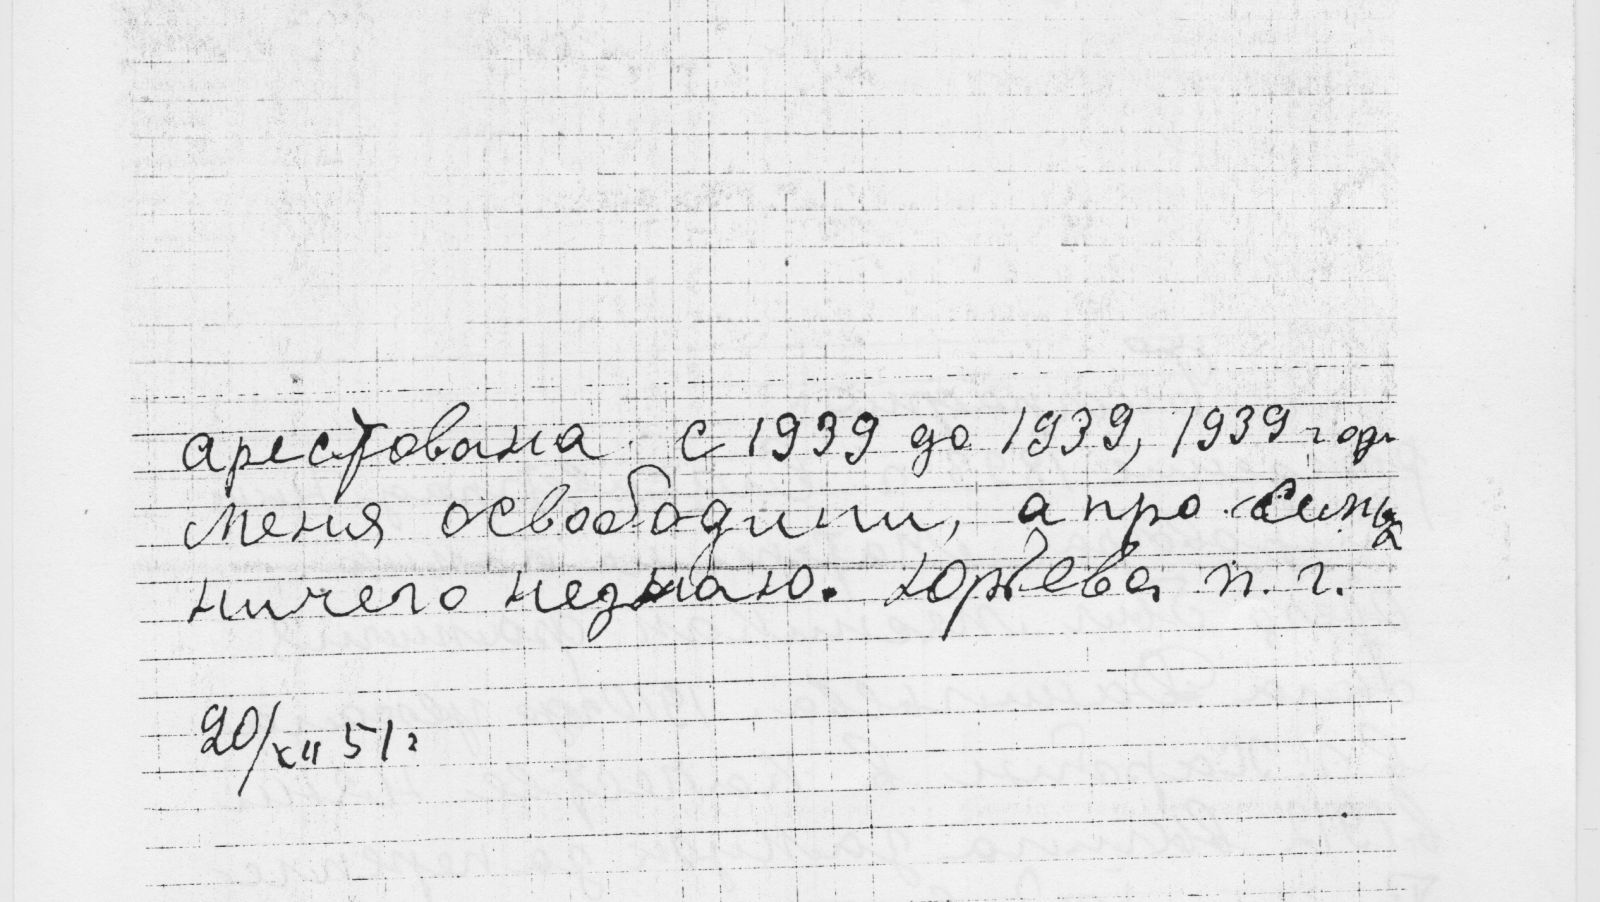 арестована с 1939 до 1939, 1939 года
меня освободили, а про сына
ничего незнаю. Юрьева п. г.
20/XII 51г